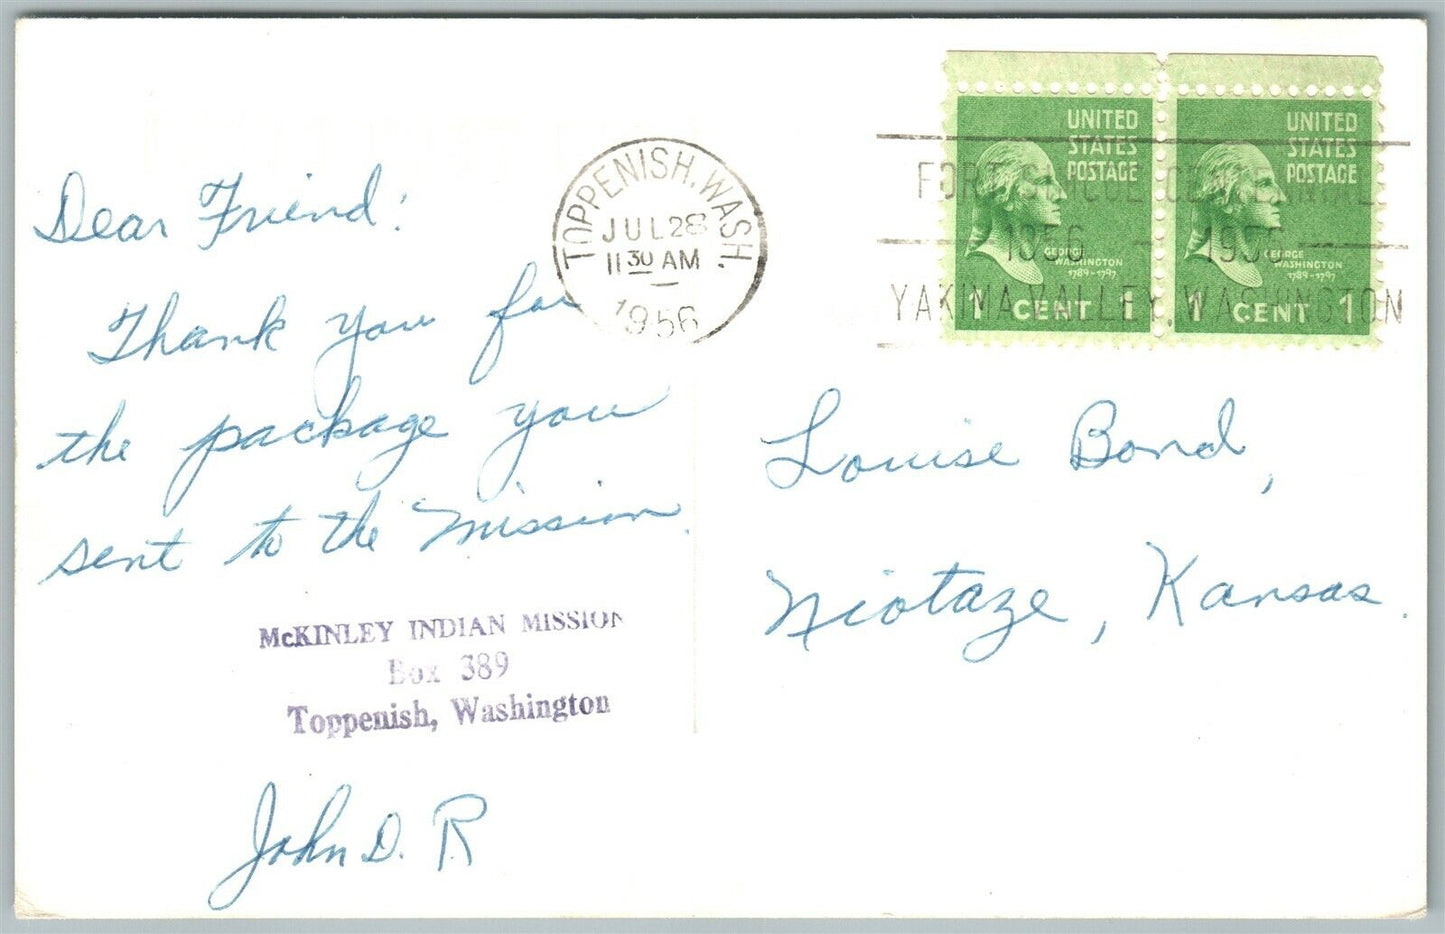 Dear Friend:
Thank you for
the package you
sent to the mission.
McKINLEY INDIAN MISSION
Box 389
Toppenish, Washington
John D. R
TOPPENISH, WASH.
JUL 28
11 30 AM
1956
FORT SIMCOE CENTENNIAL
1856 — 1956
YAKIMA VALLEY, WASHINGTON
UNITED
STATES
POSTAGE
GEORGE
WASHINGTON
1789-1797
1 CENT 1
UNITED
STATES
POSTAGE
GEORGE
WASHINGTON
1789-1797
1 CENT 1
Louise Bond,
Niotaze, Kansas.